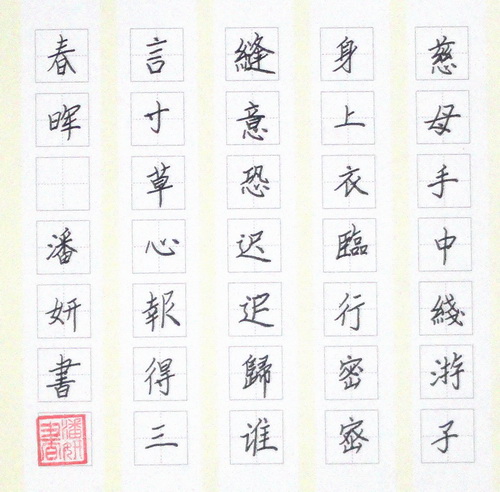 慈母手中綫游子
身上衣臨行密密
縫意恐迟迟歸谁
言寸草心報得三
春暉 潘妍書